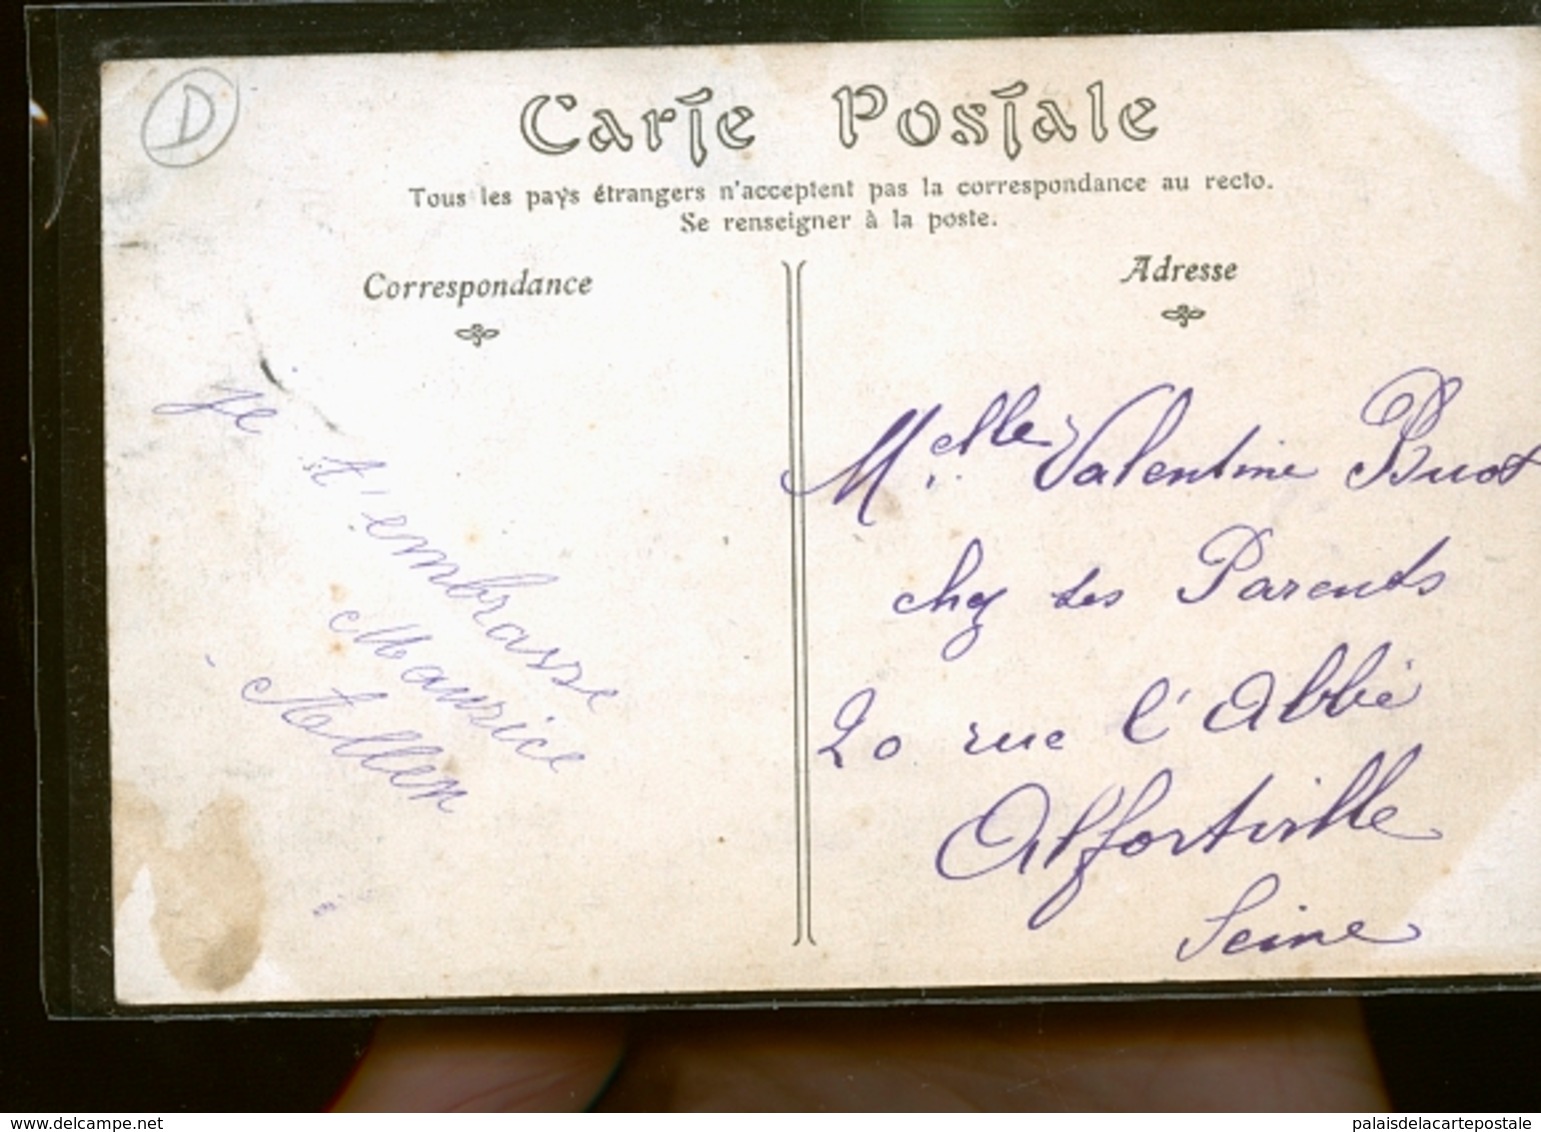 D
Carte Postale
Tous les pays étrangers n'acceptent pas la correspondance au recto.
Se renseigner à la poste.
Correspondance
Adresse
je t'embrasse
Maurice
Allen
Melle Valentine Buot
chez ses Parents
20 rue l'Abbé
Alfortville
Seine
www.delcampe.net
palaisdelacartepostale